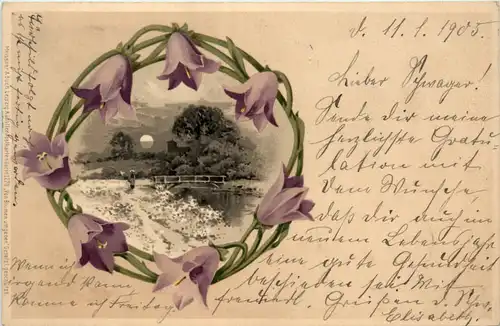 d. 11.1.1905
Lieber Schwager!
Sende dir meine
herzlichste Gratu-
lation mit
dem Wunsche,
daß dir auch im
neuen Lebensjahr
eine gute Gesundheit
beschieden sei. Mit
freundl. Grüßen d. Schw.
Elisabeth.
Wenn ich
irgend kann
komme ich Freitag.